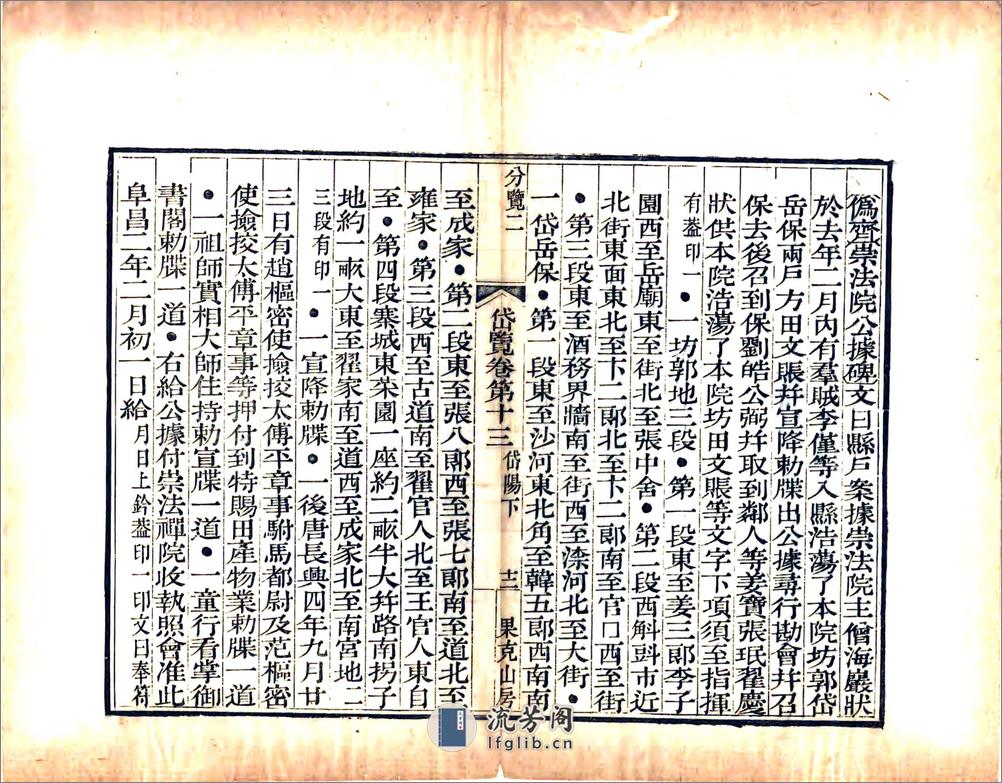 僞齊崇法院公據碑文曰縣戶案據崇法院主僧海巖狀
於去年二月內有羣城李僅等入縣浩蕩了本院坊郭岱
岳保兩戶方田文賬幷宣降勅牒出公據尋行勘會幷召
保去後召到保劉皓公弼幷取到鄰人等姜寶張珉翟慶
狀供本院浩蕩了本院坊田文賬等文字下項須至指揮
有葢印一●一坊郭地三段●第一段東至姜三郞李子
園西至岳廟東至街北至張中舍●第二段西斛㪷市近
北街東面東北至卞二郞北至卞二郞南至官口西至街
●第三段東至酒務界牆南至街西至濼河北至大街●
一岱岳保●第一段東至沙河東北角至韓五郞西南南
分覽二
岱覽卷第十三 岱陽下 十二 果克山房
至成家●第二段東至張八郞西至張七郞南至道北至
雍家●第三段西至古道南至翟官人北至王官人東自
至●第四段寨城東菜園一座約二畝半大幷路南拐子
地約一畝大東至翟家南至道西至成家北至南宮地二
三段有印一●一宣降勅牒●一後唐長興四年九月廿
三日有趙樞密使撿挍太傅平章事駙馬都尉及范樞密
使撿挍太傅平章事等押付到特賜田產物業勅牒一道
●一祖師實相大師住持勅宣牒一道●一童行看掌御
書閣勅牒一道●右給公據付崇法禪院收執照會准此
阜昌二年二月初一日給月日上鈐葢印一印文曰奉符
流芳阁
lfglib.cn